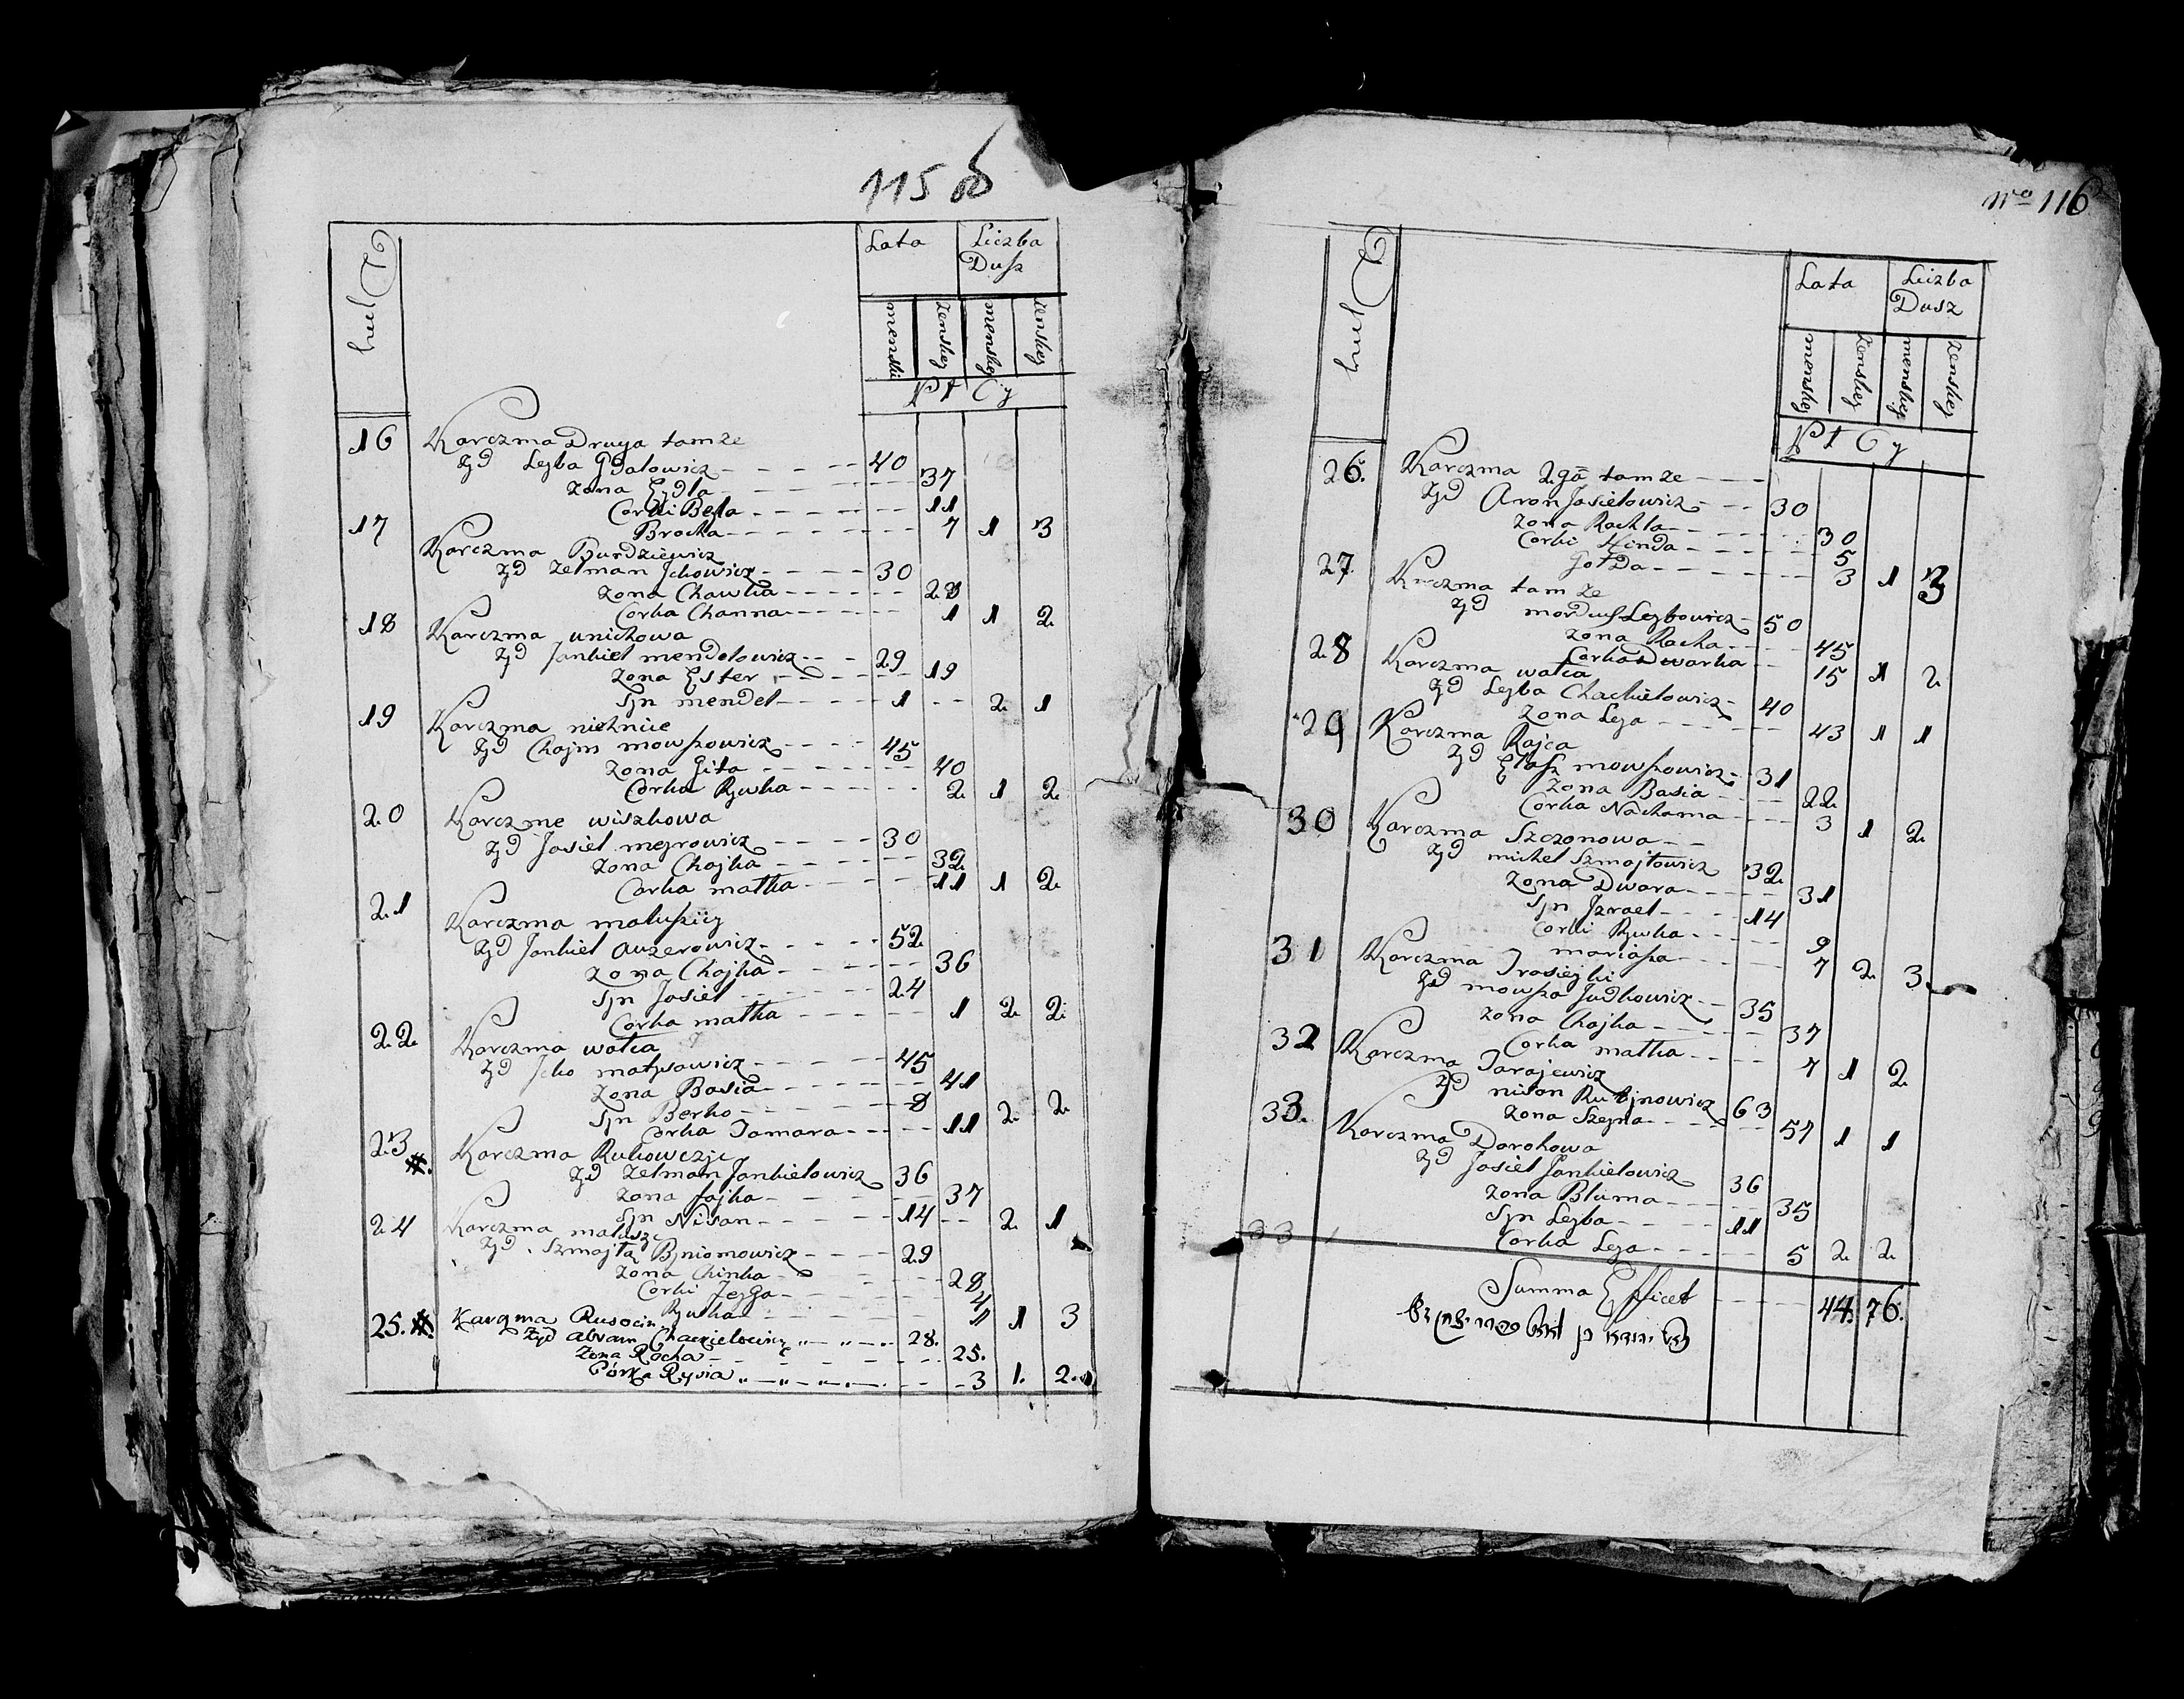 115 ob
Lata Liczba
Dusz
menski zenskey menskey zenskey
16 Karczma Druga tamże
Zyd Leyba Gdalowicz 40
zona Eydla 37
Corki Beyla 11
Brocha 7 1 3
17 Karczma Burdziewicz
Zyd Zelman Jckowicz 30
zona Chawka 28
Corka Channa 1 1 2
18 Karczma unichowa
Zyd Jankiel mendelowicz 29
zona Ester 19
Syn mendel 1 2 1
19 Karczma nichnice
Zyd Chajm mowszowicz 45
zona Gita 40
Corka Rywka 2 1 2
20 Karczme wiszkowa
Zyd Josiel meyrowicz 30
zona Chajka 32
Corka matka 11 1 2
21 Karczma
Zyd Jankiel auzerowicz 52
zona Chajka 36
Syn Josiel 24
Corka matka 1 2 2
22 Karczma wolca
Zyd Jcko matysowicz 45
zona Basia 41
Syn Berko 8
Corka Tamara 11 2 2
23 #. Karczma Rukowczyc
Zyd Zelman Jankielowicz 36
zona fajka 37
Syn Nisan 14 2 1
24 Karczma
Zyd Szmojta Byniomowicz 29
zona Chinka 28
Corki 4
Rywka 1 1 3
25. #. Karczma Rusocin
Żyd abram Chackielowicz 28.
Zona Rocha 25.
Córka Rysia 3 1. 2.
No 116
Lata Liczba
Dusz
menskey zenskey menskey zenskey
26. Karczma 2gā tamze
Zyd Aron Josielowicz 30
zona Rochla 30
Corki Hinda 5
Golda 3 1 3
27. Karczma tamże
Zyd morduch Leybowicz 50
zona Racha 45
Corka Dwarka 15 1 2
28 Karczma wolca
Zyd Leyba Chackielowicz 40
zona Leya 43 1 1
29 Karczma Rajca
Zyd Eliasz mowszowicz 31
zona Basia 22
Corka Nachama 3 1 2
30 Karczma Szczonowa
Zyd michel Szmojlowicz 32
zona Dwora 31
Syn Jzrael 14
Corki Rywka 9
mariasza 7 2 3
31 Karczma
Zyd mowsza Judkowicz 35
zona Chajka 37
Corka matka 7 1 2
32 Karczma Tarajewicz
Zyd nison Rubynowicz 63
zona Szeyna 57 1 1
33. Karczma Dorohowa
Zyd Josiel Jankielowicz 36
zona Bluma 35
Syn Leyba 11
Corka Leya 5 2 2
33
Summa Efficet 44. 76.